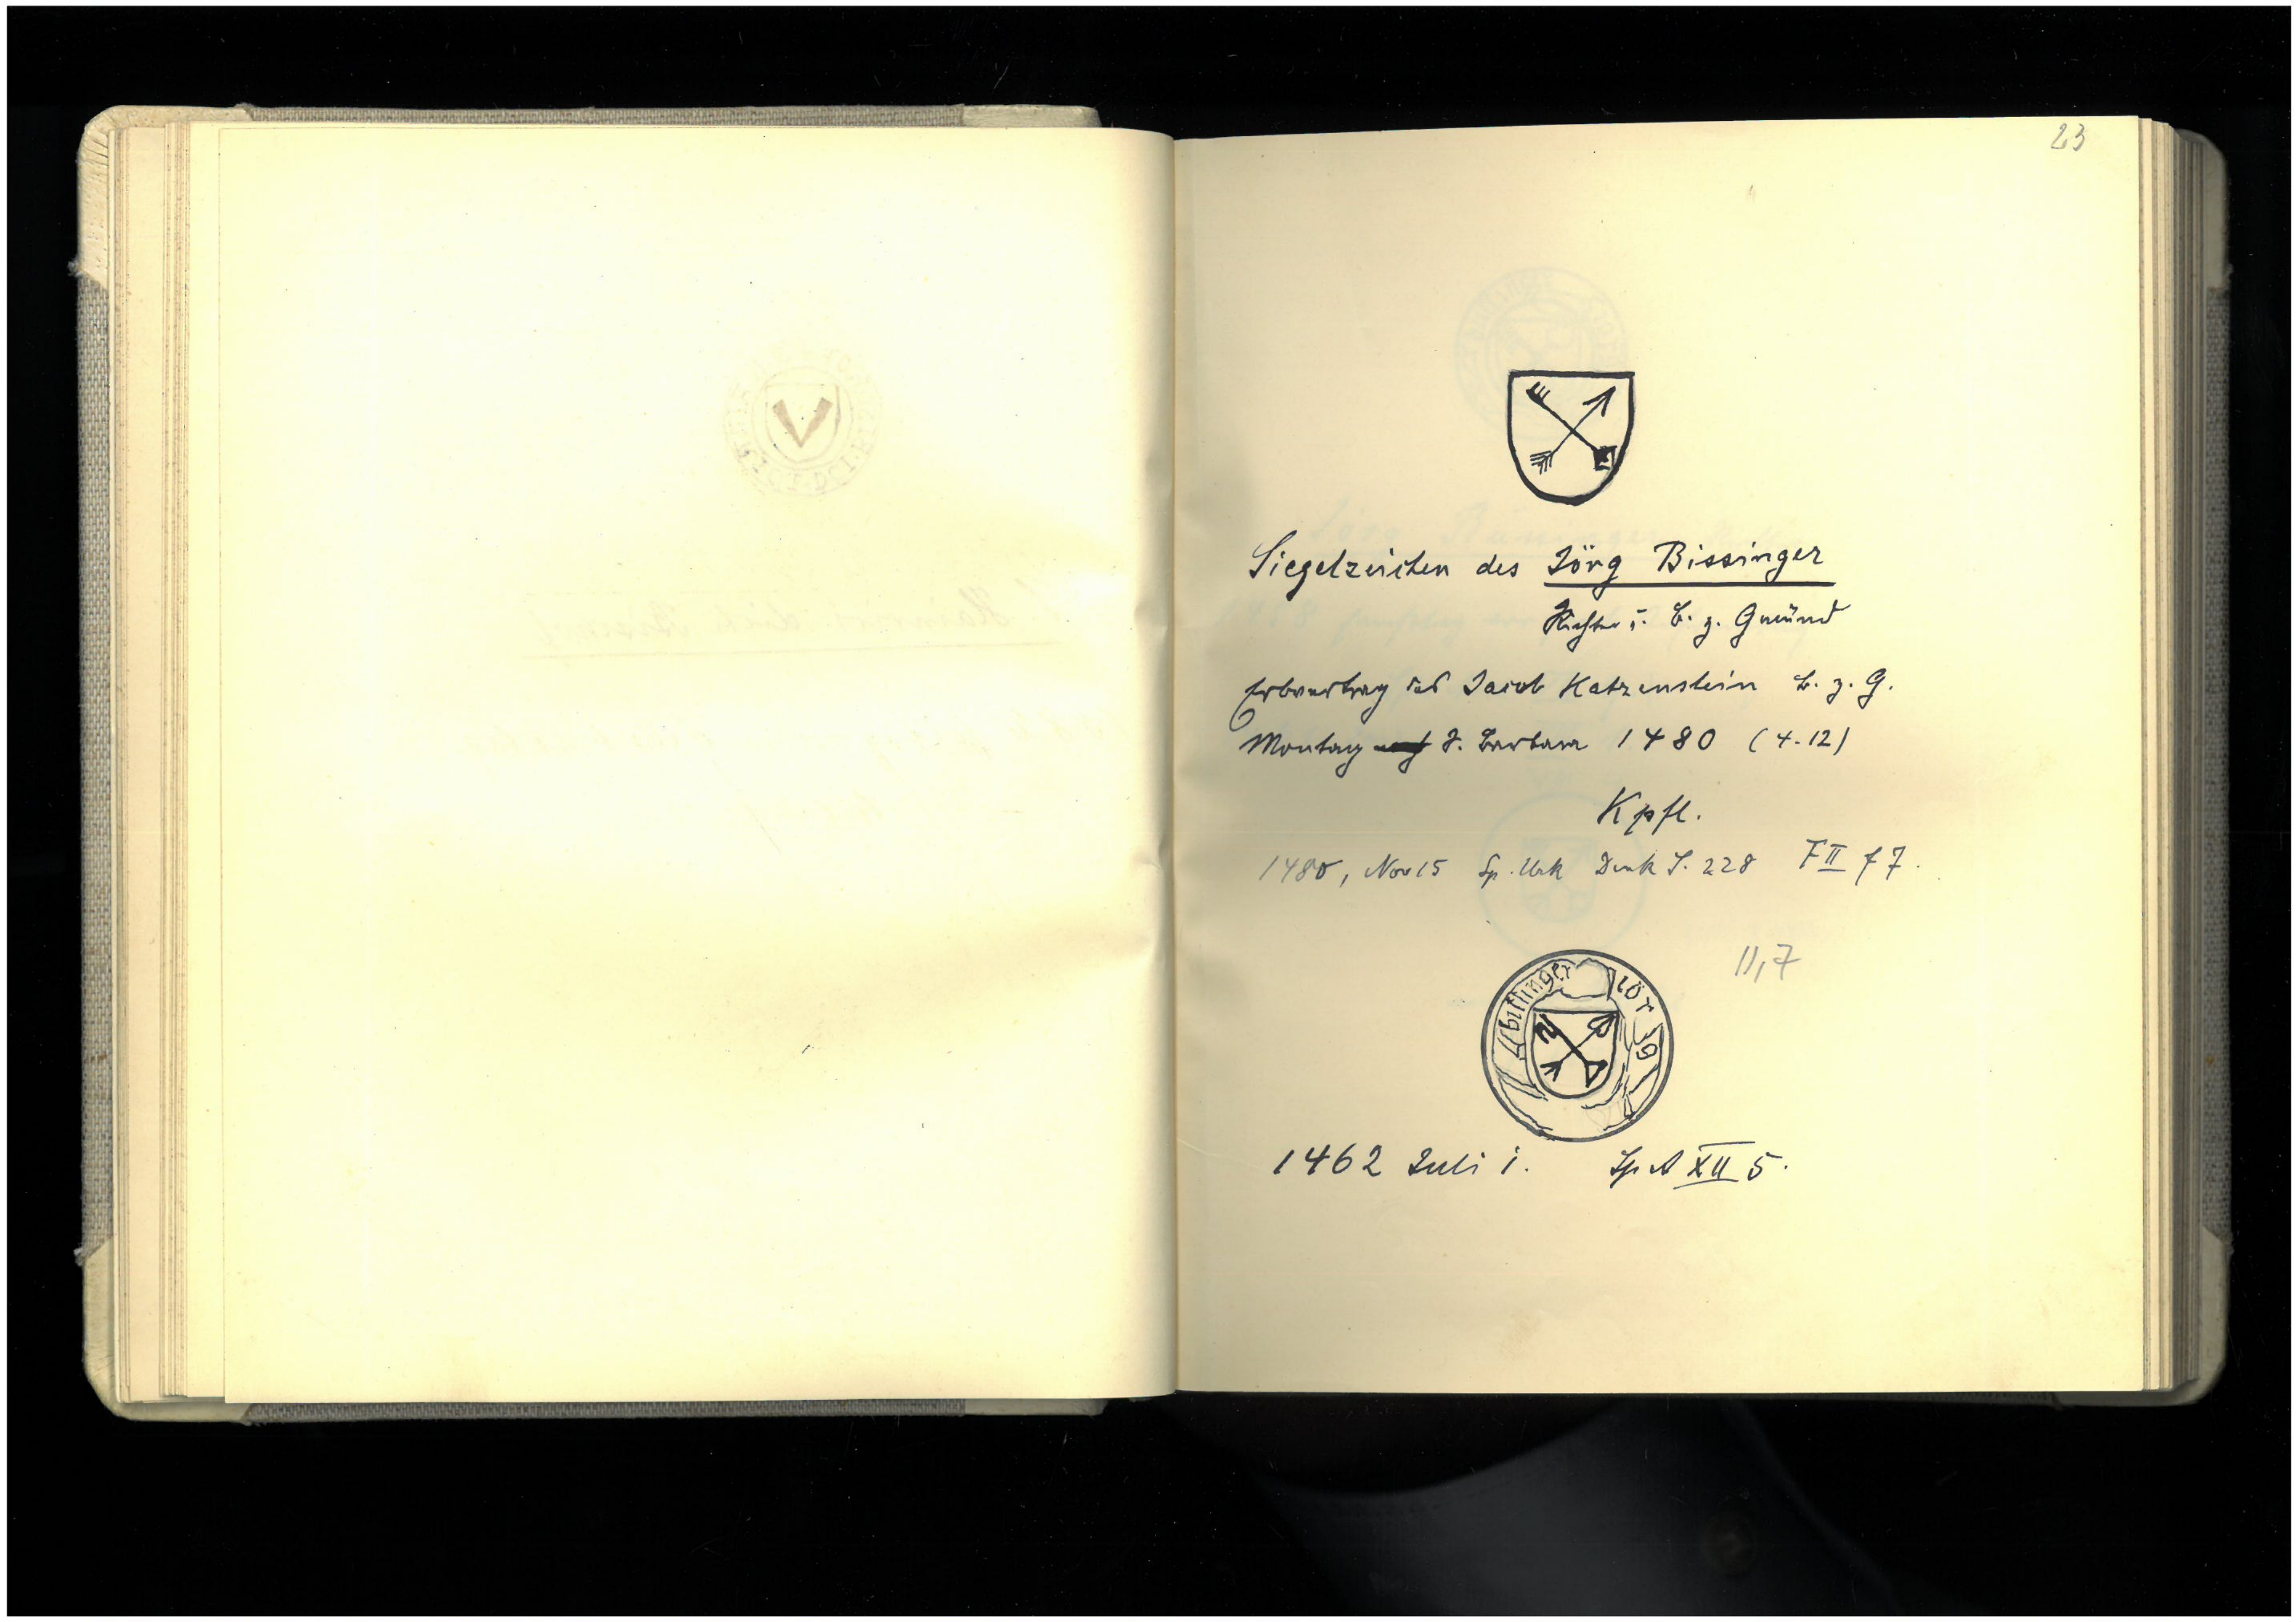 23
Siegelzeichen des Jörg Bissinger
Richter u. B. z. Gmünd
Erbvertrag des Jacob Katzenstein B. z. G.
Montag S. Barbara 1480 (4.12)
Kpfl.
1480, Nov 15 Sp. Urk Denk S. 228 F II f 7.
II,7
bissinger jörg
1462 Juli 1. Sp A XII 5.